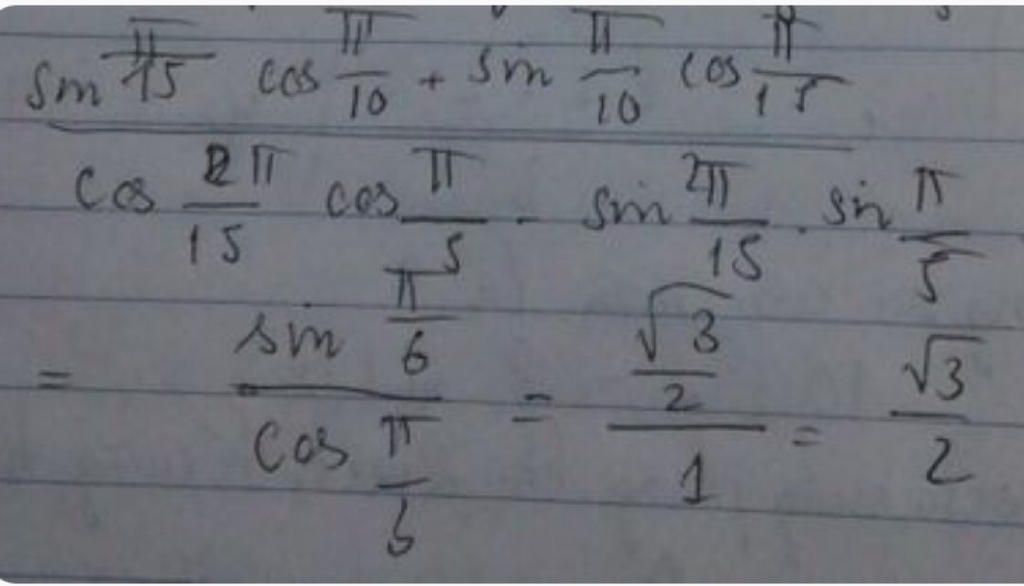 sin π/15 cos π/10 + sin π/10 cos π/15
cos 2π/15 cos π/5 - sin 2π/15 . sin π/5
= sin π/6 / cos π/3 = √3/2 / 1 = √3/2